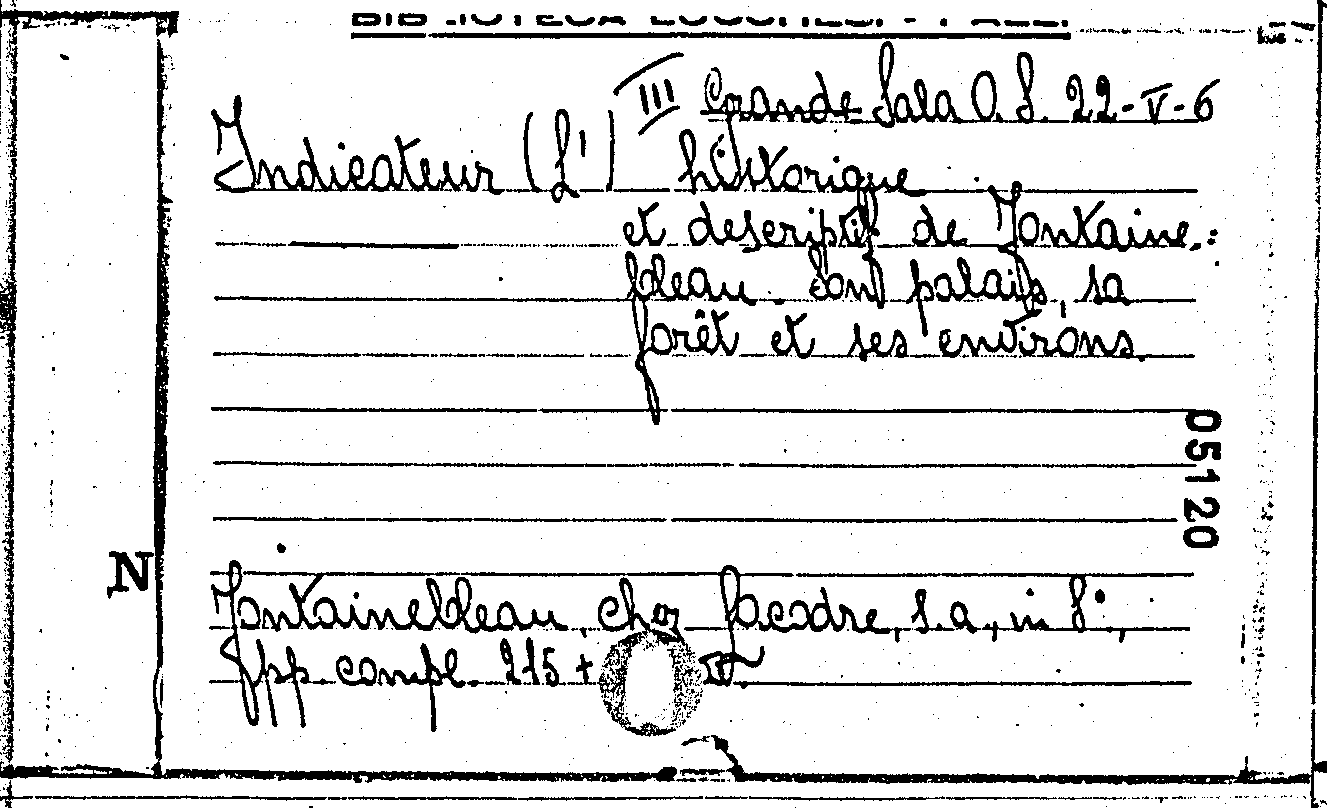 BIBLIOTECA LUCCHESI - PALLI
III Grande Sala O. L. 22-V-6
Indicateur (L') historique
et descriptif de Fontaine-
bleau. Son palais, sa
forêt et ses environs.
05120
N
Fontainebleau, chez Jacodre, s.a., in 8°,
pp. compl. 215 +